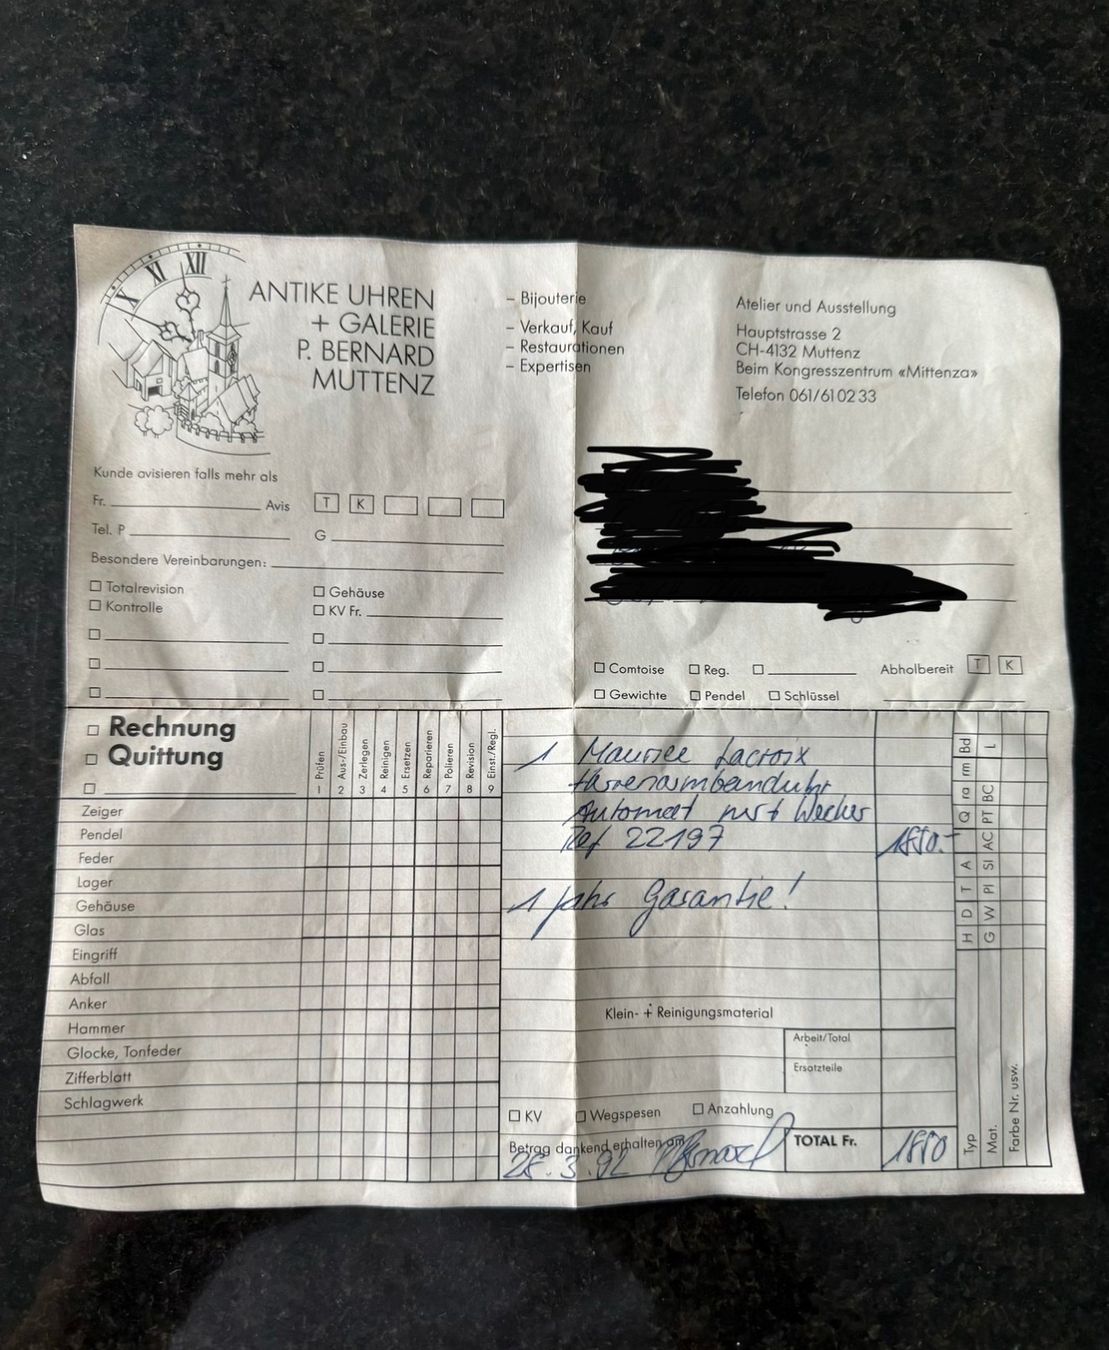 X XI XII
ANTIKE UHREN
+ GALERIE
P. BERNARD
MUTTENZ
– Bijouterie
– Verkauf, Kauf
– Restaurationen
– Expertisen
Atelier und Ausstellung
Hauptstrasse 2
CH-4132 Muttenz
Beim Kongresszentrum «Mittenza»
Telefon 061/61 02 33
Kunde avisieren falls mehr als
Fr. Avis T K
Tel. P G
Besondere Vereinbarungen:
Totalrevision Gehäuse
Kontrolle KV Fr.
Comtoise Reg. Abholbereit T K
Gewichte Pendel Schlüssel
Rechnung
Quittung
Prüfen Aus-/Einbau Zerlegen Reinigen Ersetzen Reparieren Polieren Revision Einst./Regl.
1 2 3 4 5 6 7 8 9
Zeiger
Pendel
Feder
Lager
Gehäuse
Glas
Eingriff
Abfall
Anker
Hammer
Glocke, Tonfeder
Zifferblatt
Schlagwerk
1 Maurice Lacroix
Herrenarmbanduhr
Automat mit Wecker
Ref 22197 1850.-
1 Jahr Garantie!
Klein- + Reinigungsmaterial
Arbeit/Total
Ersatzteile
KV Wegspesen Anzahlung
Betrag dankend erhalten am
28.3.92 PBernard
TOTAL Fr. 1850
Typ H D T A Q ra rm Bd
Mat. G W PI SI AC PT BC L
Farbe Nr. usw.